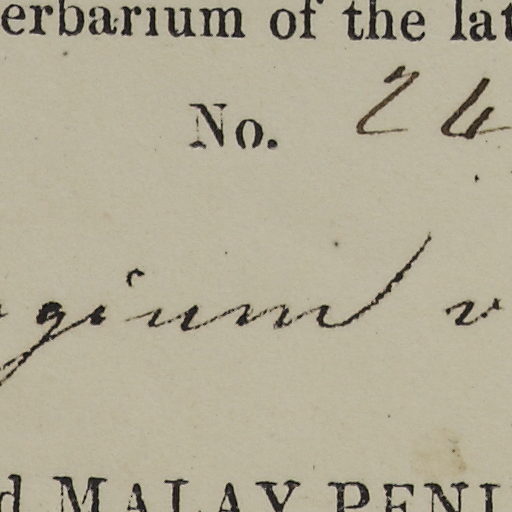 erbarium of the lat
No. 24
gium v
d MALAY PENI